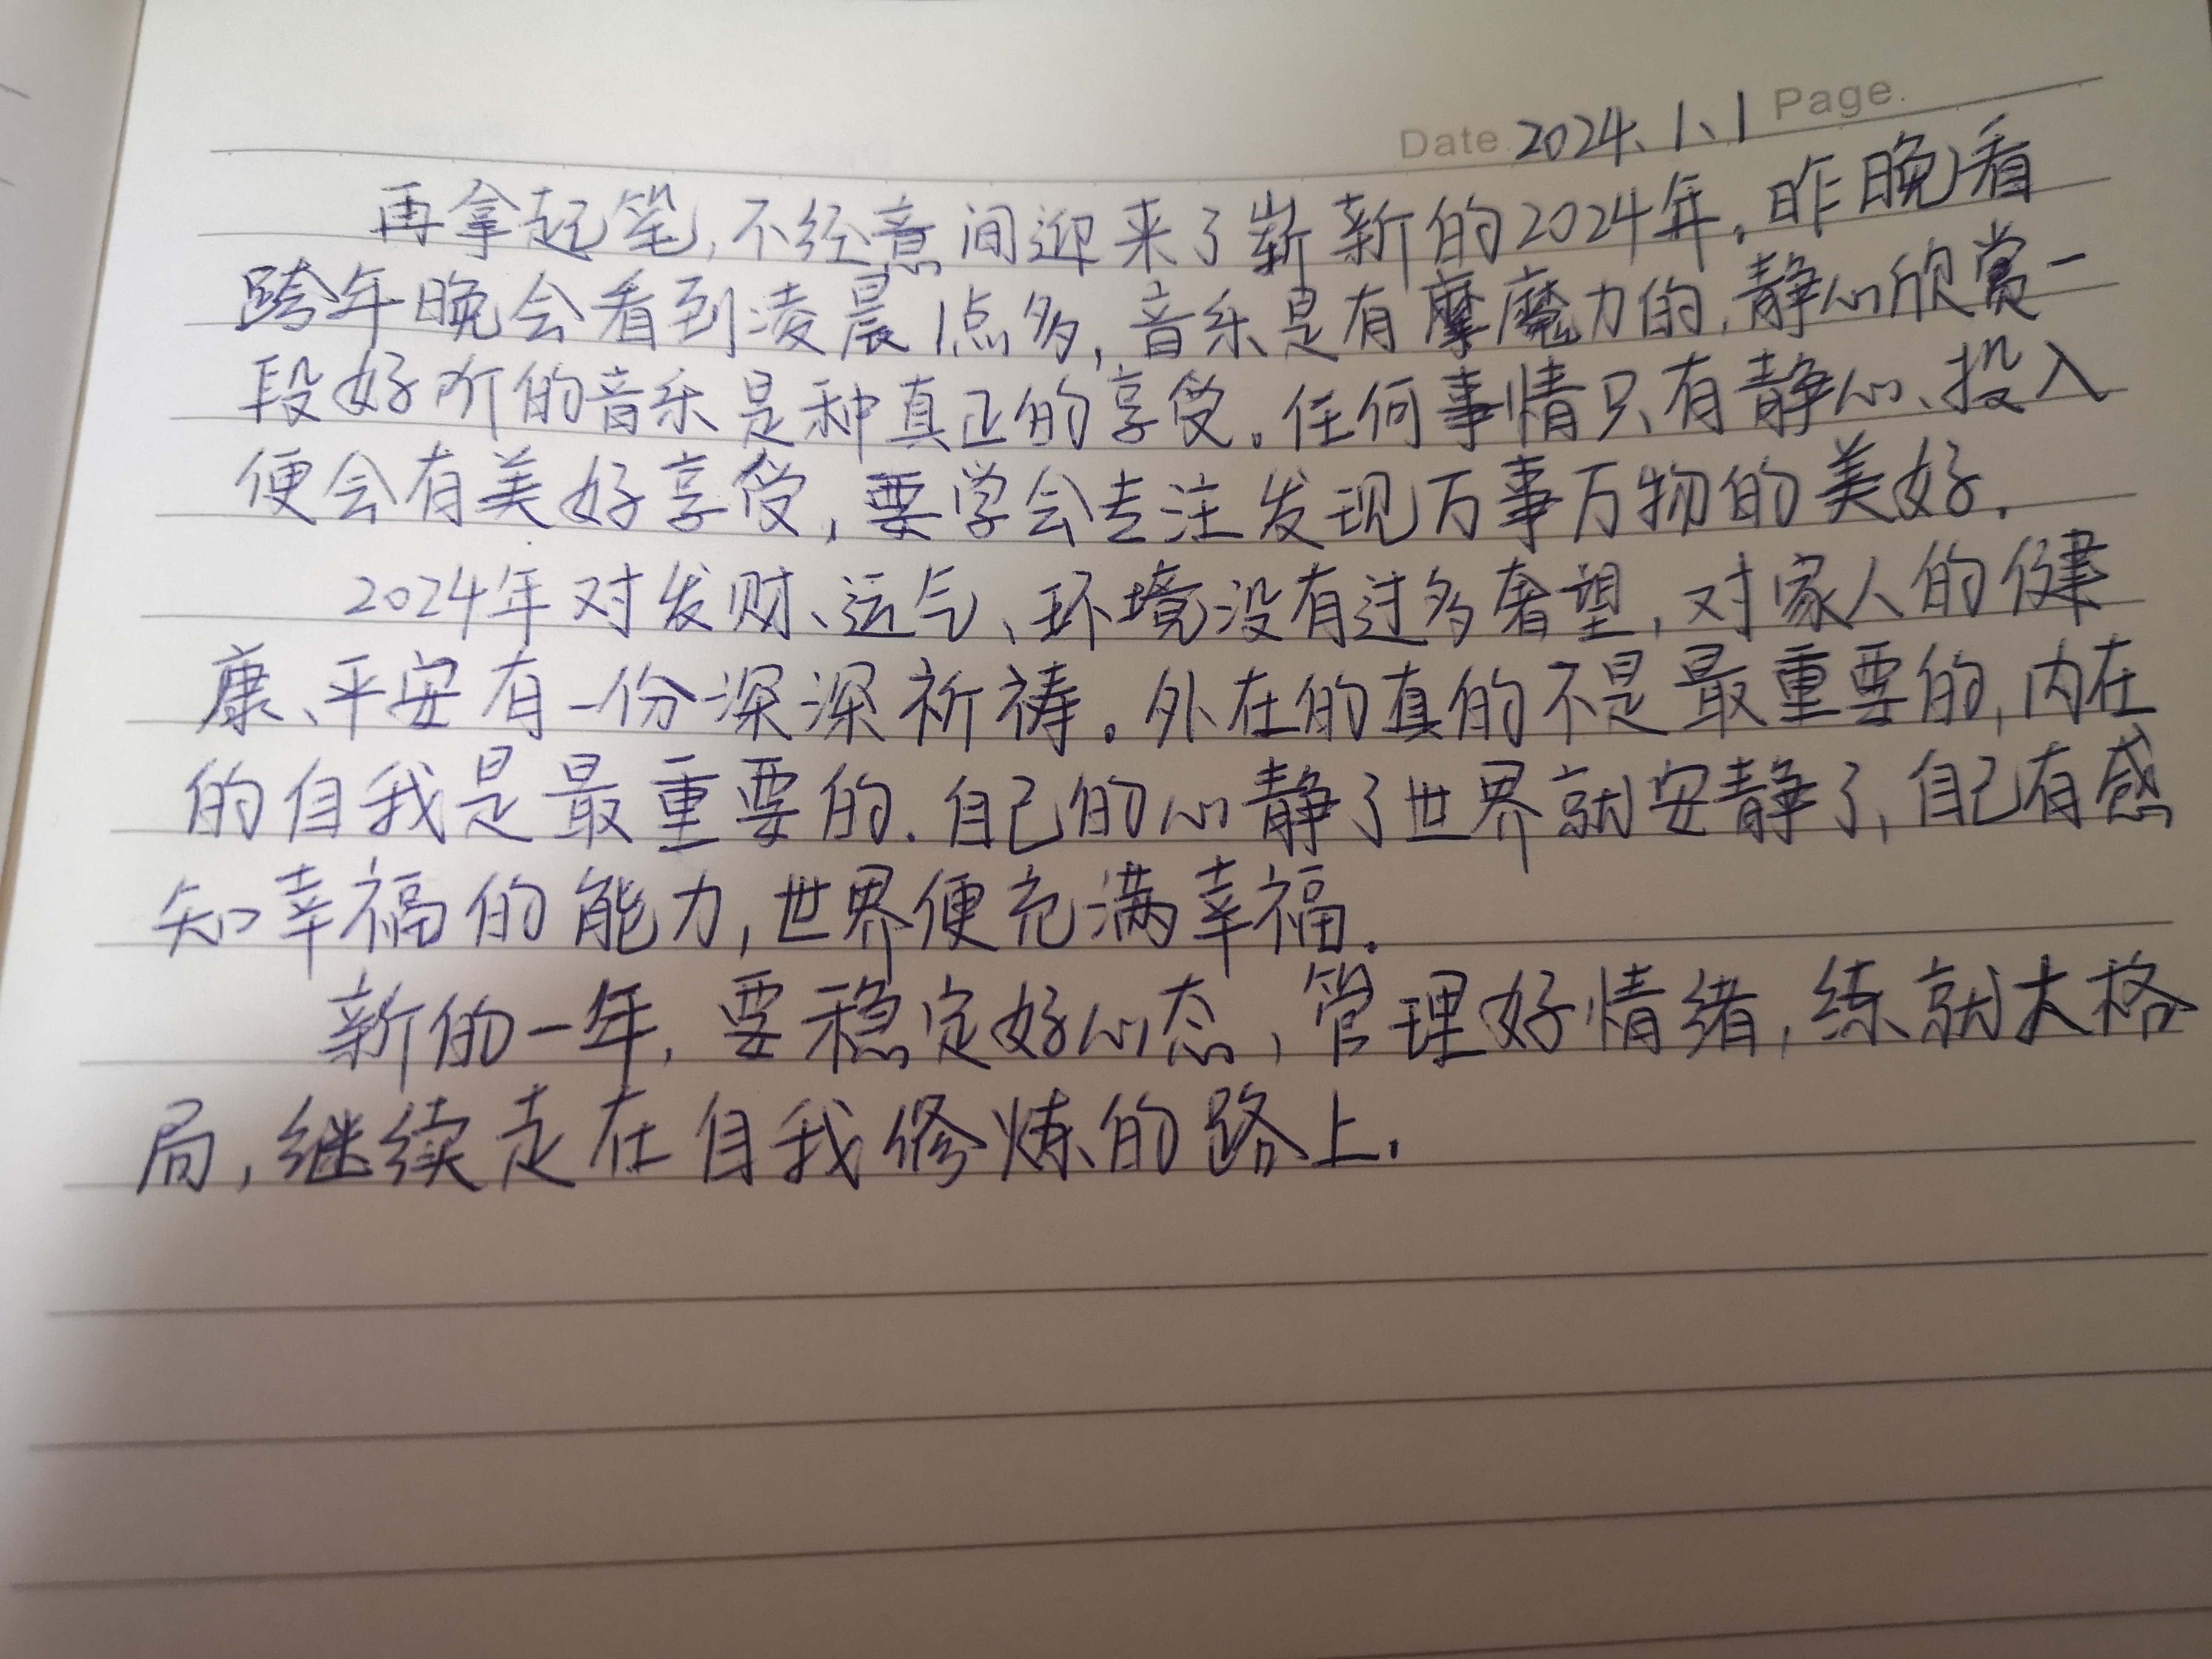 Date 2024、1、1 Page.
再拿起笔,不经意间迎来了崭新的2024年。昨晚看
跨年晚会看到凌晨1点多,音乐是有魔力的,静心欣赏一
段好听的音乐是种真正的享受。任何事情只有静心、投入
便会有美好享受,要学会专注发现万事万物的美好.
2024年对发财、运气、环境没有过多奢望,对家人的健
康、平安有一份深深祈祷。外在的真的不是最重要的,内在
的自我是最重要的.自己的心静了世界就安静了,自己有感
知幸福的能力,世界便充满幸福.
新的一年,要稳定好心态,管理好情绪,练就大格
局,继续走在自我修炼的路上.